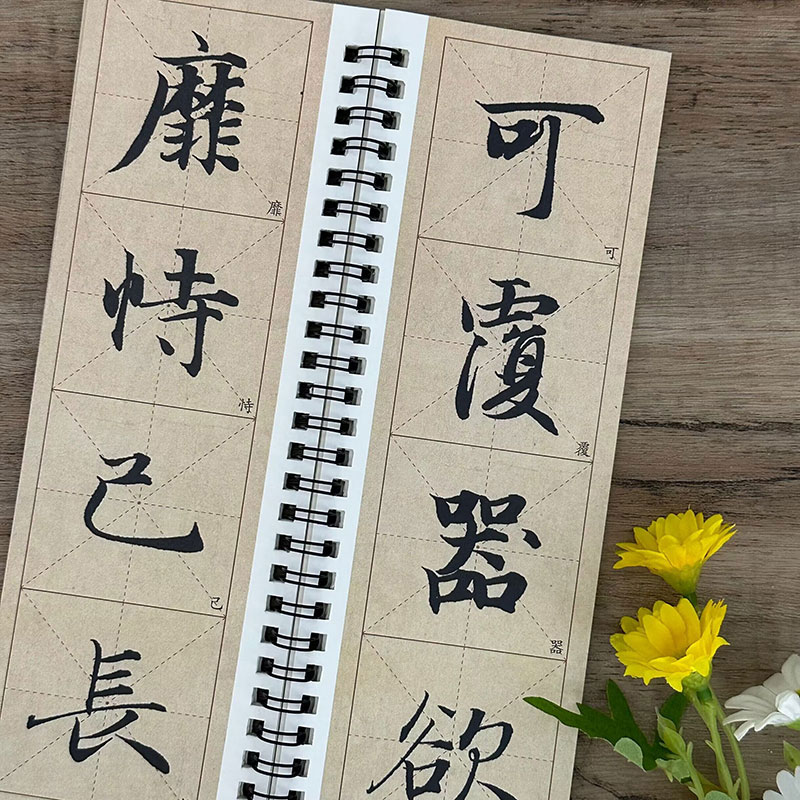 靡恃己長
靡恃己
可覆器欲
可覆器